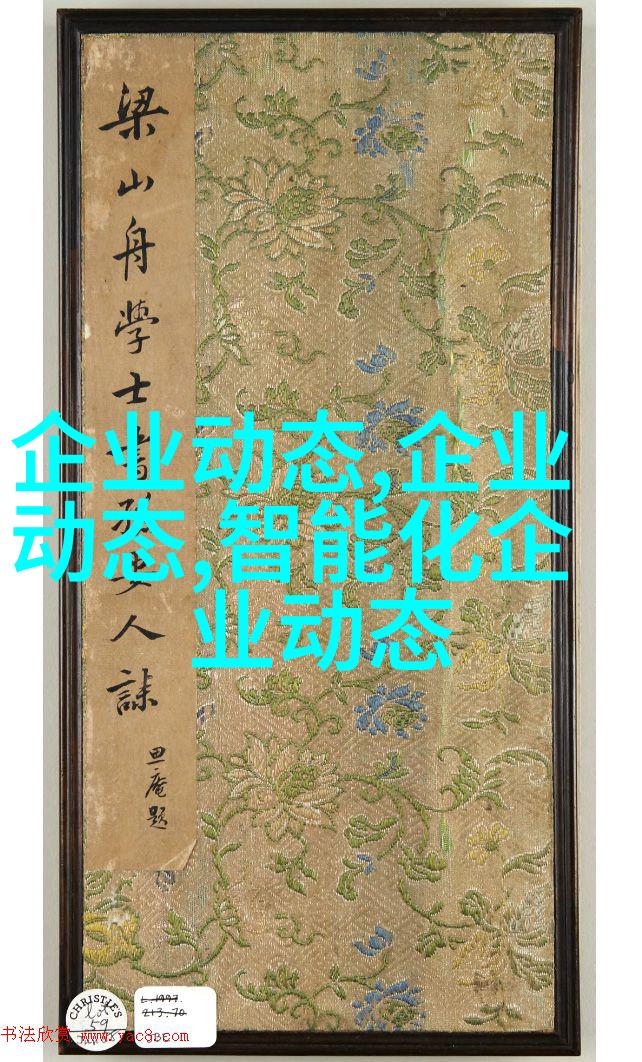 梁山舟學士書
夫人誄
思庵題
企业动态,企业
动态,智能化企
业动态
CHRISTIE'S
Lot
59
L.1997.
213.70
书法欣赏 www.yac8.com